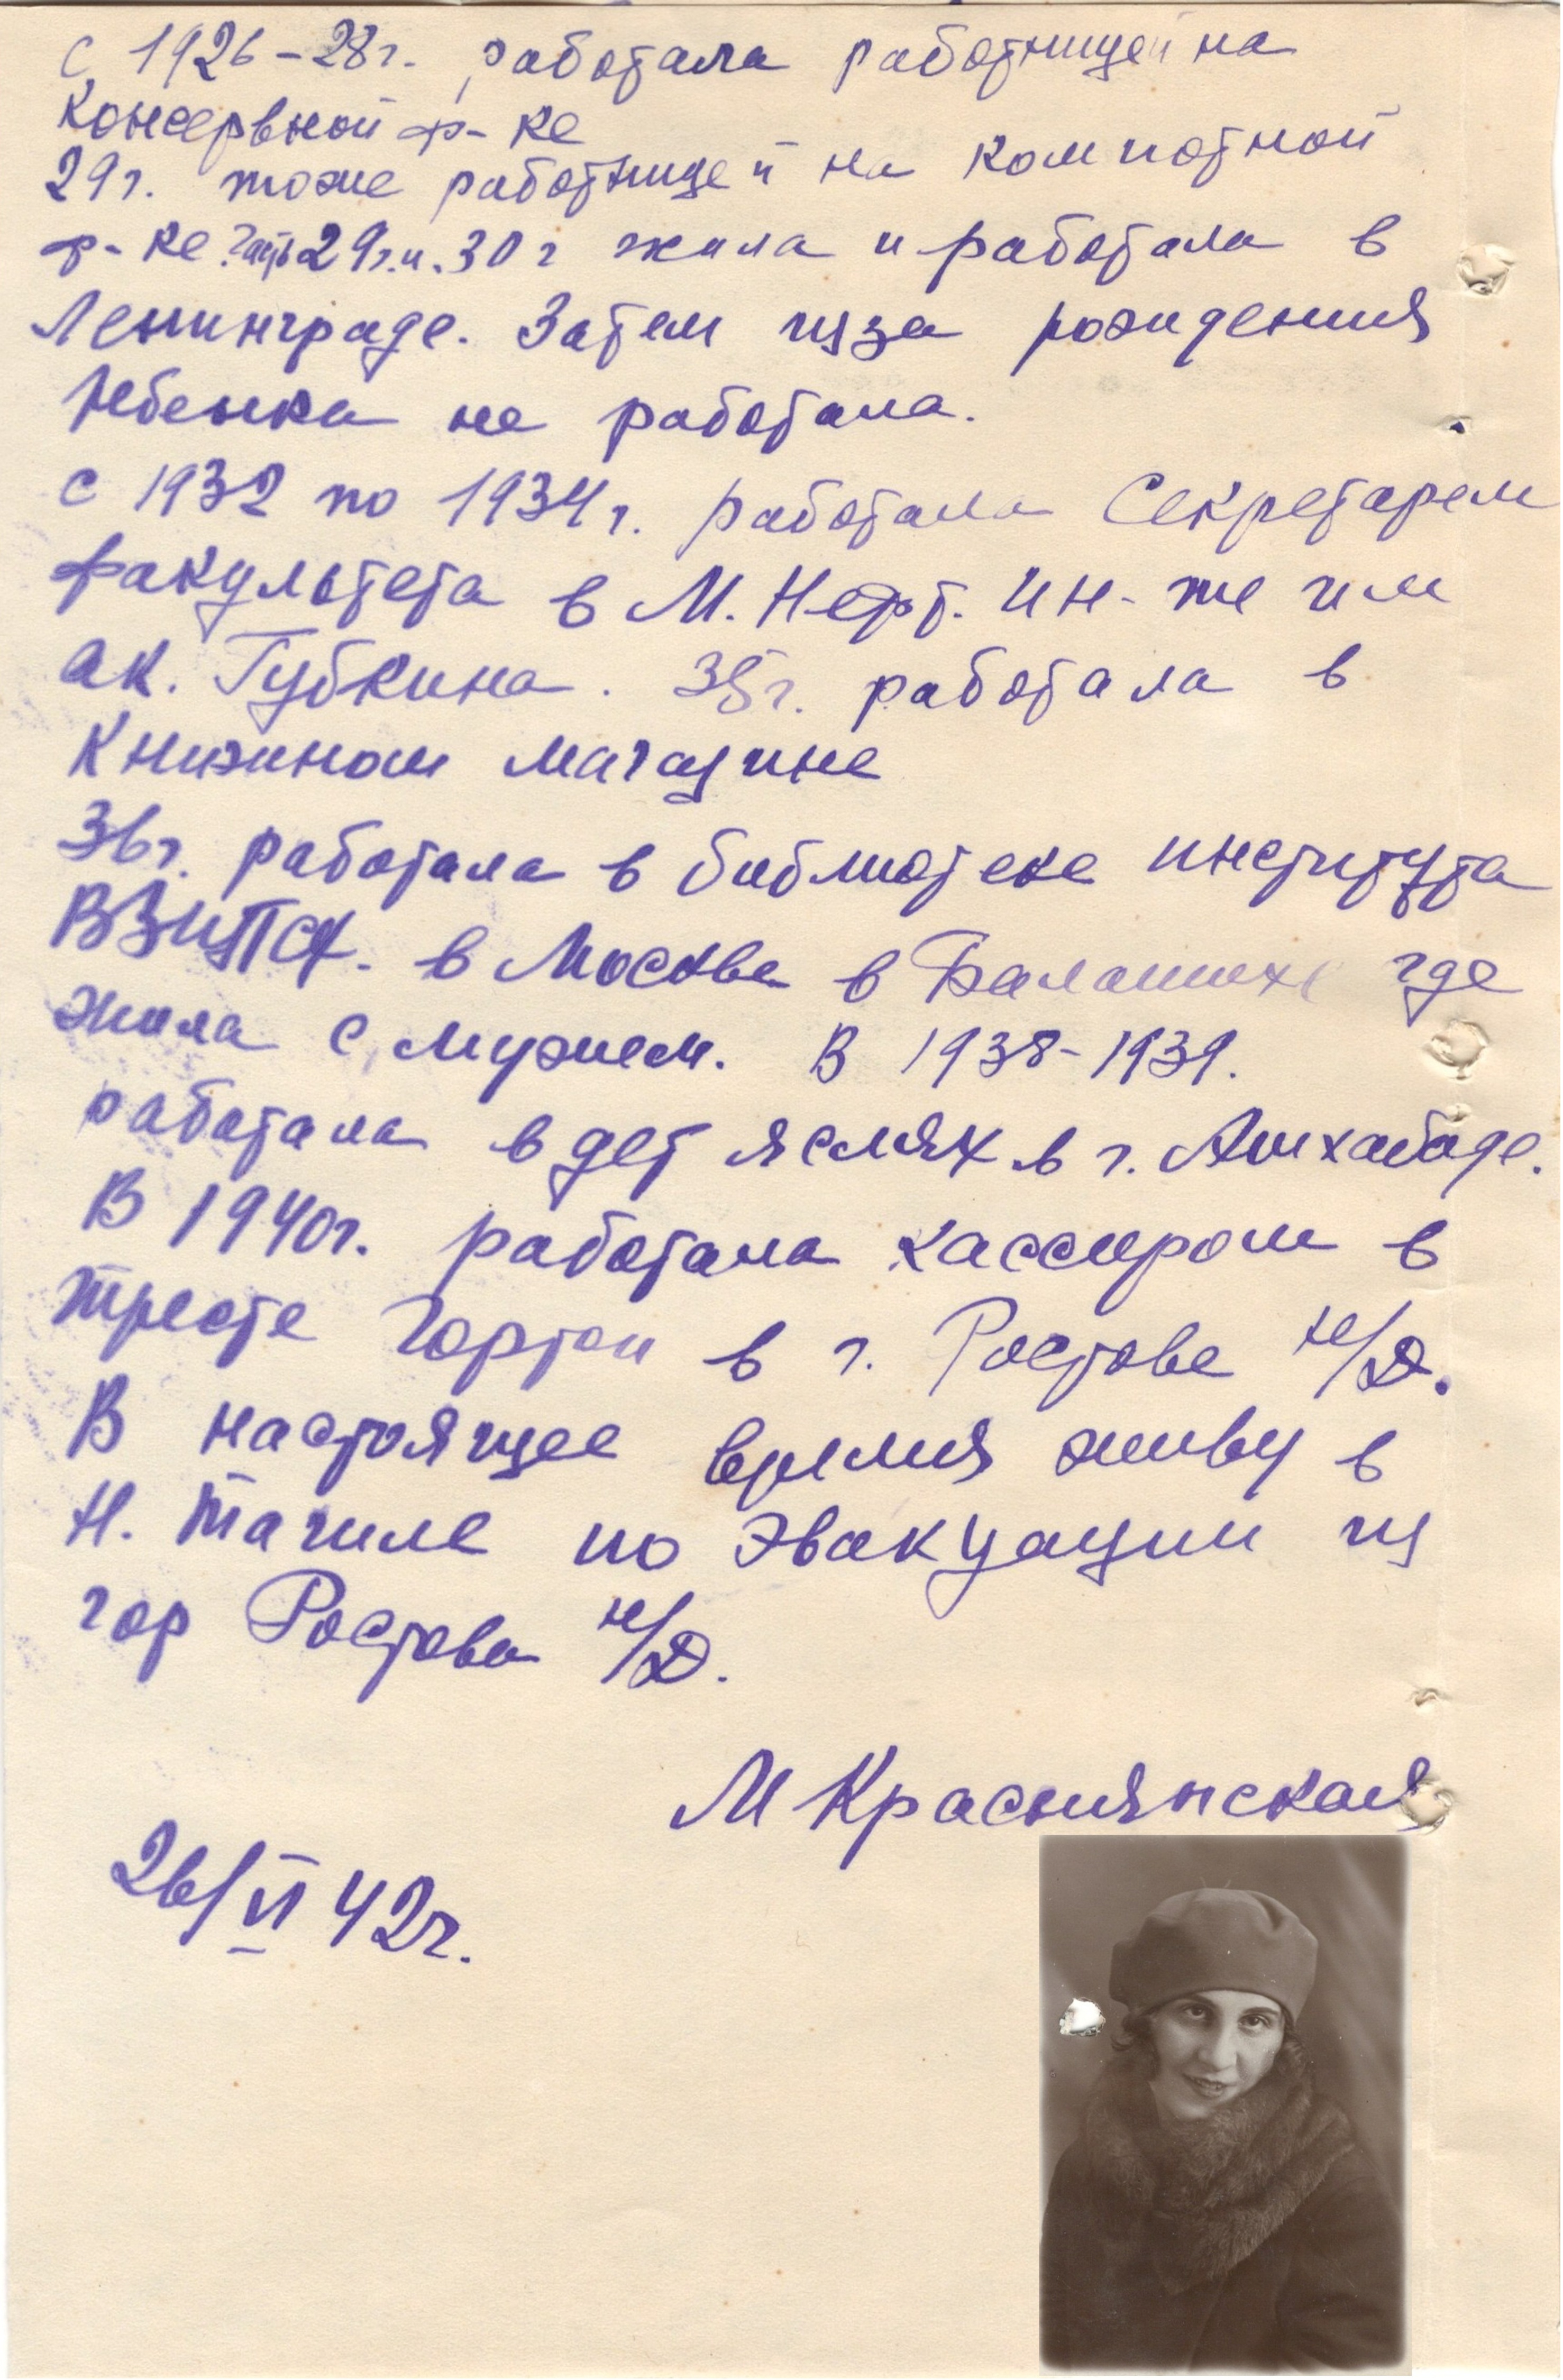 с 1926-28г. работала работницей на
Консервной ф-ке
29г. тоже работницей на компотной
ф-ке. Часть 29г. и. 30г жила и работала в
Ленинграде. Затем изза рождения
ребенка не работала.
с 1932 по 1934г. работала Секретарем
факультета в М. Нефт. Ин-те им
ак. Губкина. 35г. работала в
Книжном магазине
36г. работала в библиотеке института
в Москве в Балашихе где
жила с мужем. В 1938-1939.
работала в дет яслях в г. Ашхабаде.
В 1940г. работала кассиром в
тресте Гортоп в г. Ростове н/Д.
В настоящее время живу в
Н. Тагиле по эвакуации из
гор Ростова н/Д.
М Краснянская
26/VI 42г.